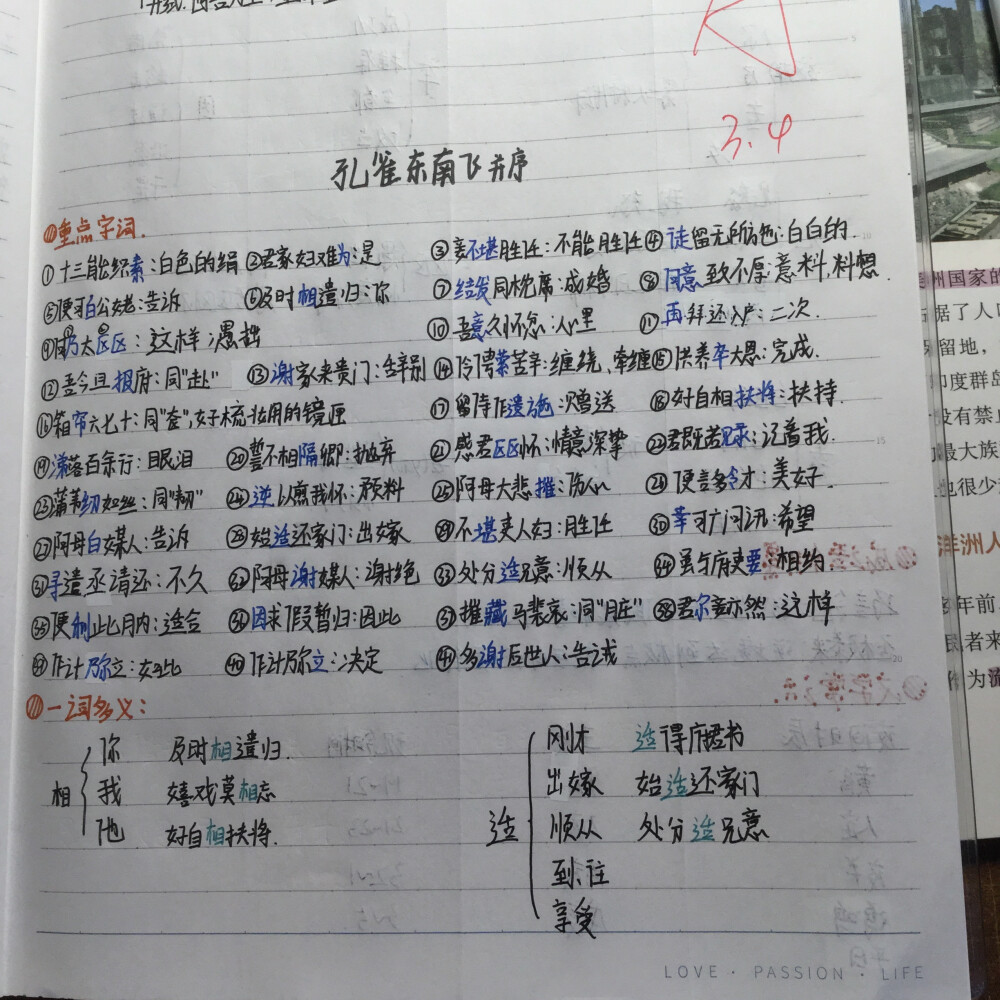 3.4
孔雀东南飞并序
重点字词.
①十三能织素:白色的绢 ②君家妇难为:是 ③妾不堪胜任:不能胜任 ④徒留无所施:白白的.
⑤便可白公姥:告诉 ⑥及时相遣归:你 ⑦结发同枕席:成婚 ⑧何意致不厚:意料,料想.
⑨何乃太区区:这样;愚拙 ⑩吾意久怀忿:心里 ⑪再拜还入户:二次.
⑫吾今且报府:同"赴" ⑬谢家来贵门:辞别 ⑭伶俜萦苦辛:缠绕、牵缠 ⑮供养卒大恩:完成.
⑯箱帘六七十:同"奁",女子梳妆用的镜匣 ⑰留待作遗施:赠送 ⑱好自相扶将:扶持.
⑲涕落百余行:眼泪 ⑳誓不相隔卿:抛弃 ㉑感君区区怀:情意深挚 ㉒君既若见录:记着我.
㉓蒲苇纫如丝:同"韧" ㉔逆以煎我怀:预料 ㉕阿母大悲摧:伤心 ㉖便言多令才:美好.
㉗阿母白媒人:告诉 ㉘始适还家门:出嫁 ㉙不堪吏人妇:胜任 ㉚幸可广问讯:希望
㉛寻遣丞请还:不久 ㉜阿母谢媒人:谢绝 ㉝处分适兄意:顺从 ㉞虽与府吏要:相约.
㉟便利此月内:适合 ㊱因求假暂归:因此 ㊲摧藏马悲哀:同"脏" ㊳君尔妾亦然:这样
㊴作计乃尔立:如此 ㊵作计乃尔立:决定 ㊶多谢后世人:告诫
一词多义:
相 你 及时相遣归.
我 嬉戏莫相忘
他 好自相扶将.
适 刚才 适得府君书
出嫁 始适还家门
顺从 处分适兄意
到、往
享受
LOVE · PASSION · LIFE
洲国家的
据了人口
保留地,
印度群岛
没有禁
最大族
也很少
洋洲人
年前
民者来
作为流